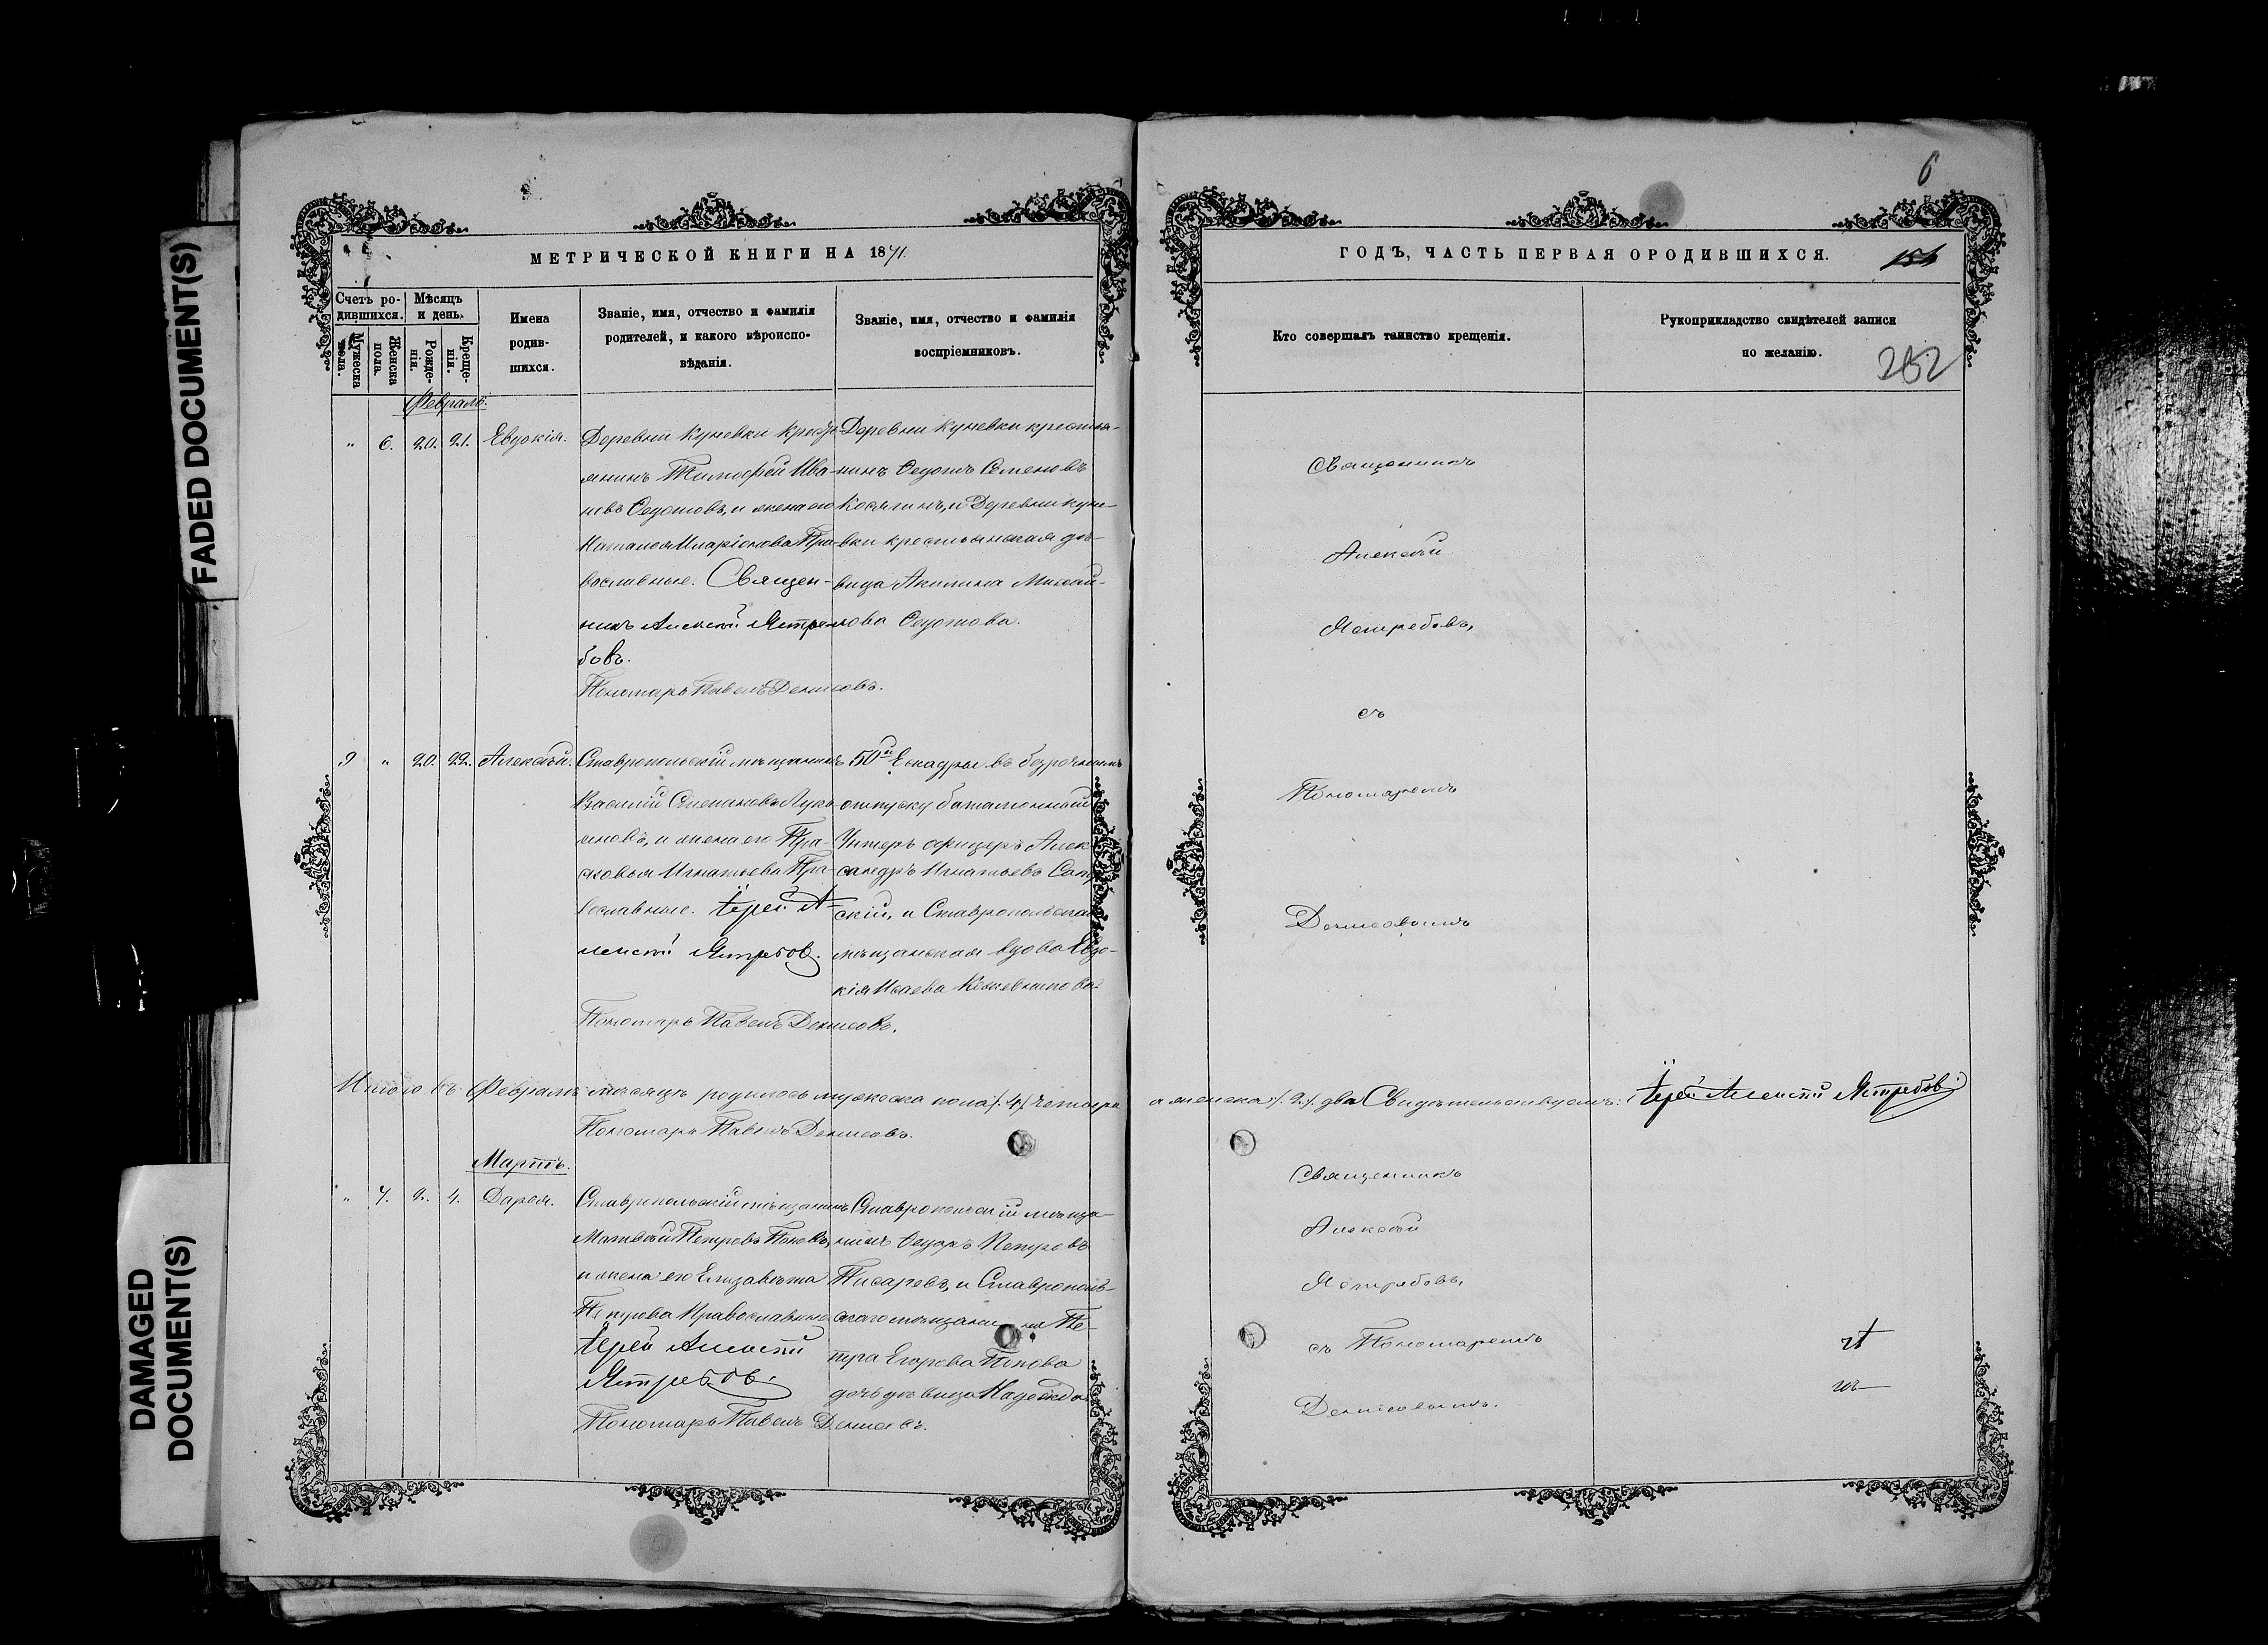 FADED DOCUMENT(S)
DAMAGED
DOCUMENT(S)
МЕТРИЧЕСКОЙ КНИГИ НА 1871.
Счетъ ро-
дившихся.
Мѣсяцъ
и день.
Мужеска
пола.
Женска
пола.
Рожде-
нія.
Креще-
нія.
Имена
родив-
шихся.
Званіе, имя, отчество и фамилія
родителей, и какого вѣроиспо-
вѣданія.
Званіе, имя, отчество и фамилія
воспріемниковъ.
Февраль.
" 6. 20. 21. Евдокія.
Деревни Куневки кресть-
янинъ Тимофей Ива-
новъ Ѳедотовъ, и жена его
Наталья Иларіонова Пра-
вославные. Священ-
никъ Алексѣй Ястре-
бовъ.
Пономарь Павелъ Денисовъ.
Деревни Куневки крестья-
нинъ Ѳедотъ Семеновъ
и Деревни Куне-
вки крестьянская дѣ-
вица Акилина Михай-
лова Ѳедотова.
9 " 20. 22. Алексѣй.
Ставропольскій мѣщанинъ
Василій Степановъ Лукь-
яновъ, и жена его Пра-
сковья Игнатьева Пра-
вославные. Іерей А-
лексѣй Ястребовъ.
Пономарь Павелъ Денисовъ.
50й Ескадры въ безсрочномъ
отпуску баталіонный
Унтеръ офицеръ Алек
сандръ Игнатьевъ
скій, и Ставропольская
мѣщанская вдова Евдо-
кія Исаева Кожевникова
Итого въ Февралѣ мѣсяцѣ родилось мужеска пола /.4/. четыре
Пономарь Павелъ Денисовъ.
Мартъ.
" 7. 2. 4. Дарья.
Ставропольскій мѣщанинъ
Матвѣй Петровъ Поповъ,
и жена его Елизавета
Петрова Православные
Іерей Алексѣй
Ястребовъ.
Пономарь Павелъ Денисовъ.
Ставропольскій мѣща-
нинъ Ѳедоръ Петровъ
Писаревъ, и Ставрополь-
скаго мѣщанина Пе-
тра Егорова Попова
дочь дѣвица Надежда
6
ГОДЪ, ЧАСТЬ ПЕРВАЯ О РОДИВШИХСЯ.
Кто совершалъ таинство крещенія.
Рукоприкладство свидѣтелей записи
по желанію.
252
Священникъ
Алексѣй
Ястребовъ,
съ
Пономаремъ
Денисовымъ
а женска /.2/. два Свидѣтельствуемъ: Іерей Алексѣй Ястребовъ
Священникъ
Алексѣй
Ястребовъ,
съ Пономаремъ
Денисовымъ.